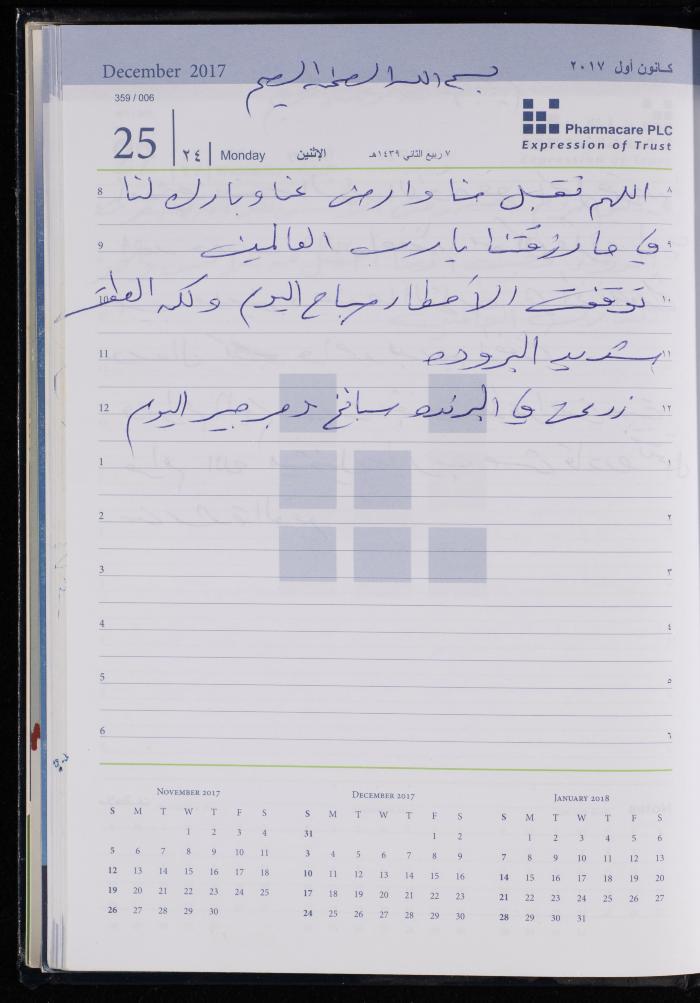 December 2017
كانون أول ٢٠١٧
بسم الله الرحمن الرحيم
359 / 006
25
٢٤
Monday
الإثنين
٧ ربيع الثاني ١٤٣٩هـ
Pharmacare PLC
Expression of Trust
8 اللهم تقبل منا وارض عنا وبارك لنا ٨
9 في ما رزقتنا يا رب العالمين ٩
10 توقفت الأمطار صباح اليوم ولكن الطقس ١٠
11 شديد البروده ١١
12 زرعت في البرنده سبانخ وجرجير اليوم ١٢
1 ١
2 ٢
3 ٣
4 ٤
5 ٥
6 ٦
November 2017
S M T W T F S
1 2 3 4
5 6 7 8 9 10 11
12 13 14 15 16 17 18
19 20 21 22 23 24 25
26 27 28 29 30
December 2017
S M T W T F S
31 1 2
3 4 5 6 7 8 9
10 11 12 13 14 15 16
17 18 19 20 21 22 23
24 25 26 27 28 29 30
January 2018
S M T W T F S
1 2 3 4 5 6
7 8 9 10 11 12 13
14 15 16 17 18 19 20
21 22 23 24 25 26 27
28 29 30 31